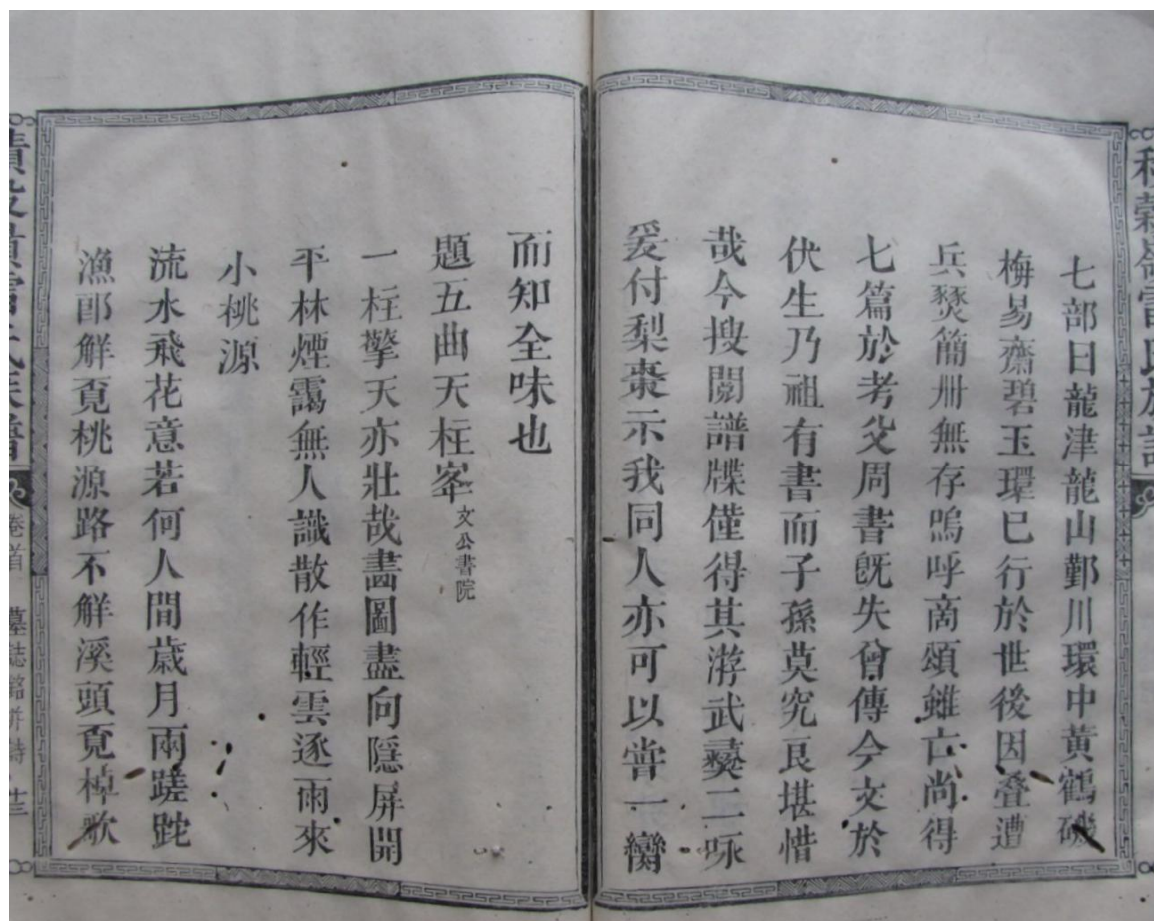 七部曰龍津龍山鄞川環中黄鶴磯
梅易齋碧玉環已行於世後因叠遭
兵燹簡册無存嗚呼啇頌雖亡尚得
七篇於考父周書旣失曾傳今文於
伏生乃祖有書而子孫莫究良堪惜
哉今搜閱譜牒僅得其游武彛二咏
爰付梨棗示我同人亦可以嘗一臠
而知全味也
題五曲天柱峯文公書院
一柱擎天亦壯哉畵圖盡向隱屏開
平林煙靄無人識散作輕雲逐雨來
小桃源
流水飛花意若何人間歲月兩蹉跎
漁郎觧覔桃源路不觧溪頭覔棹歌
卷首 墓誌銘併詩 十三